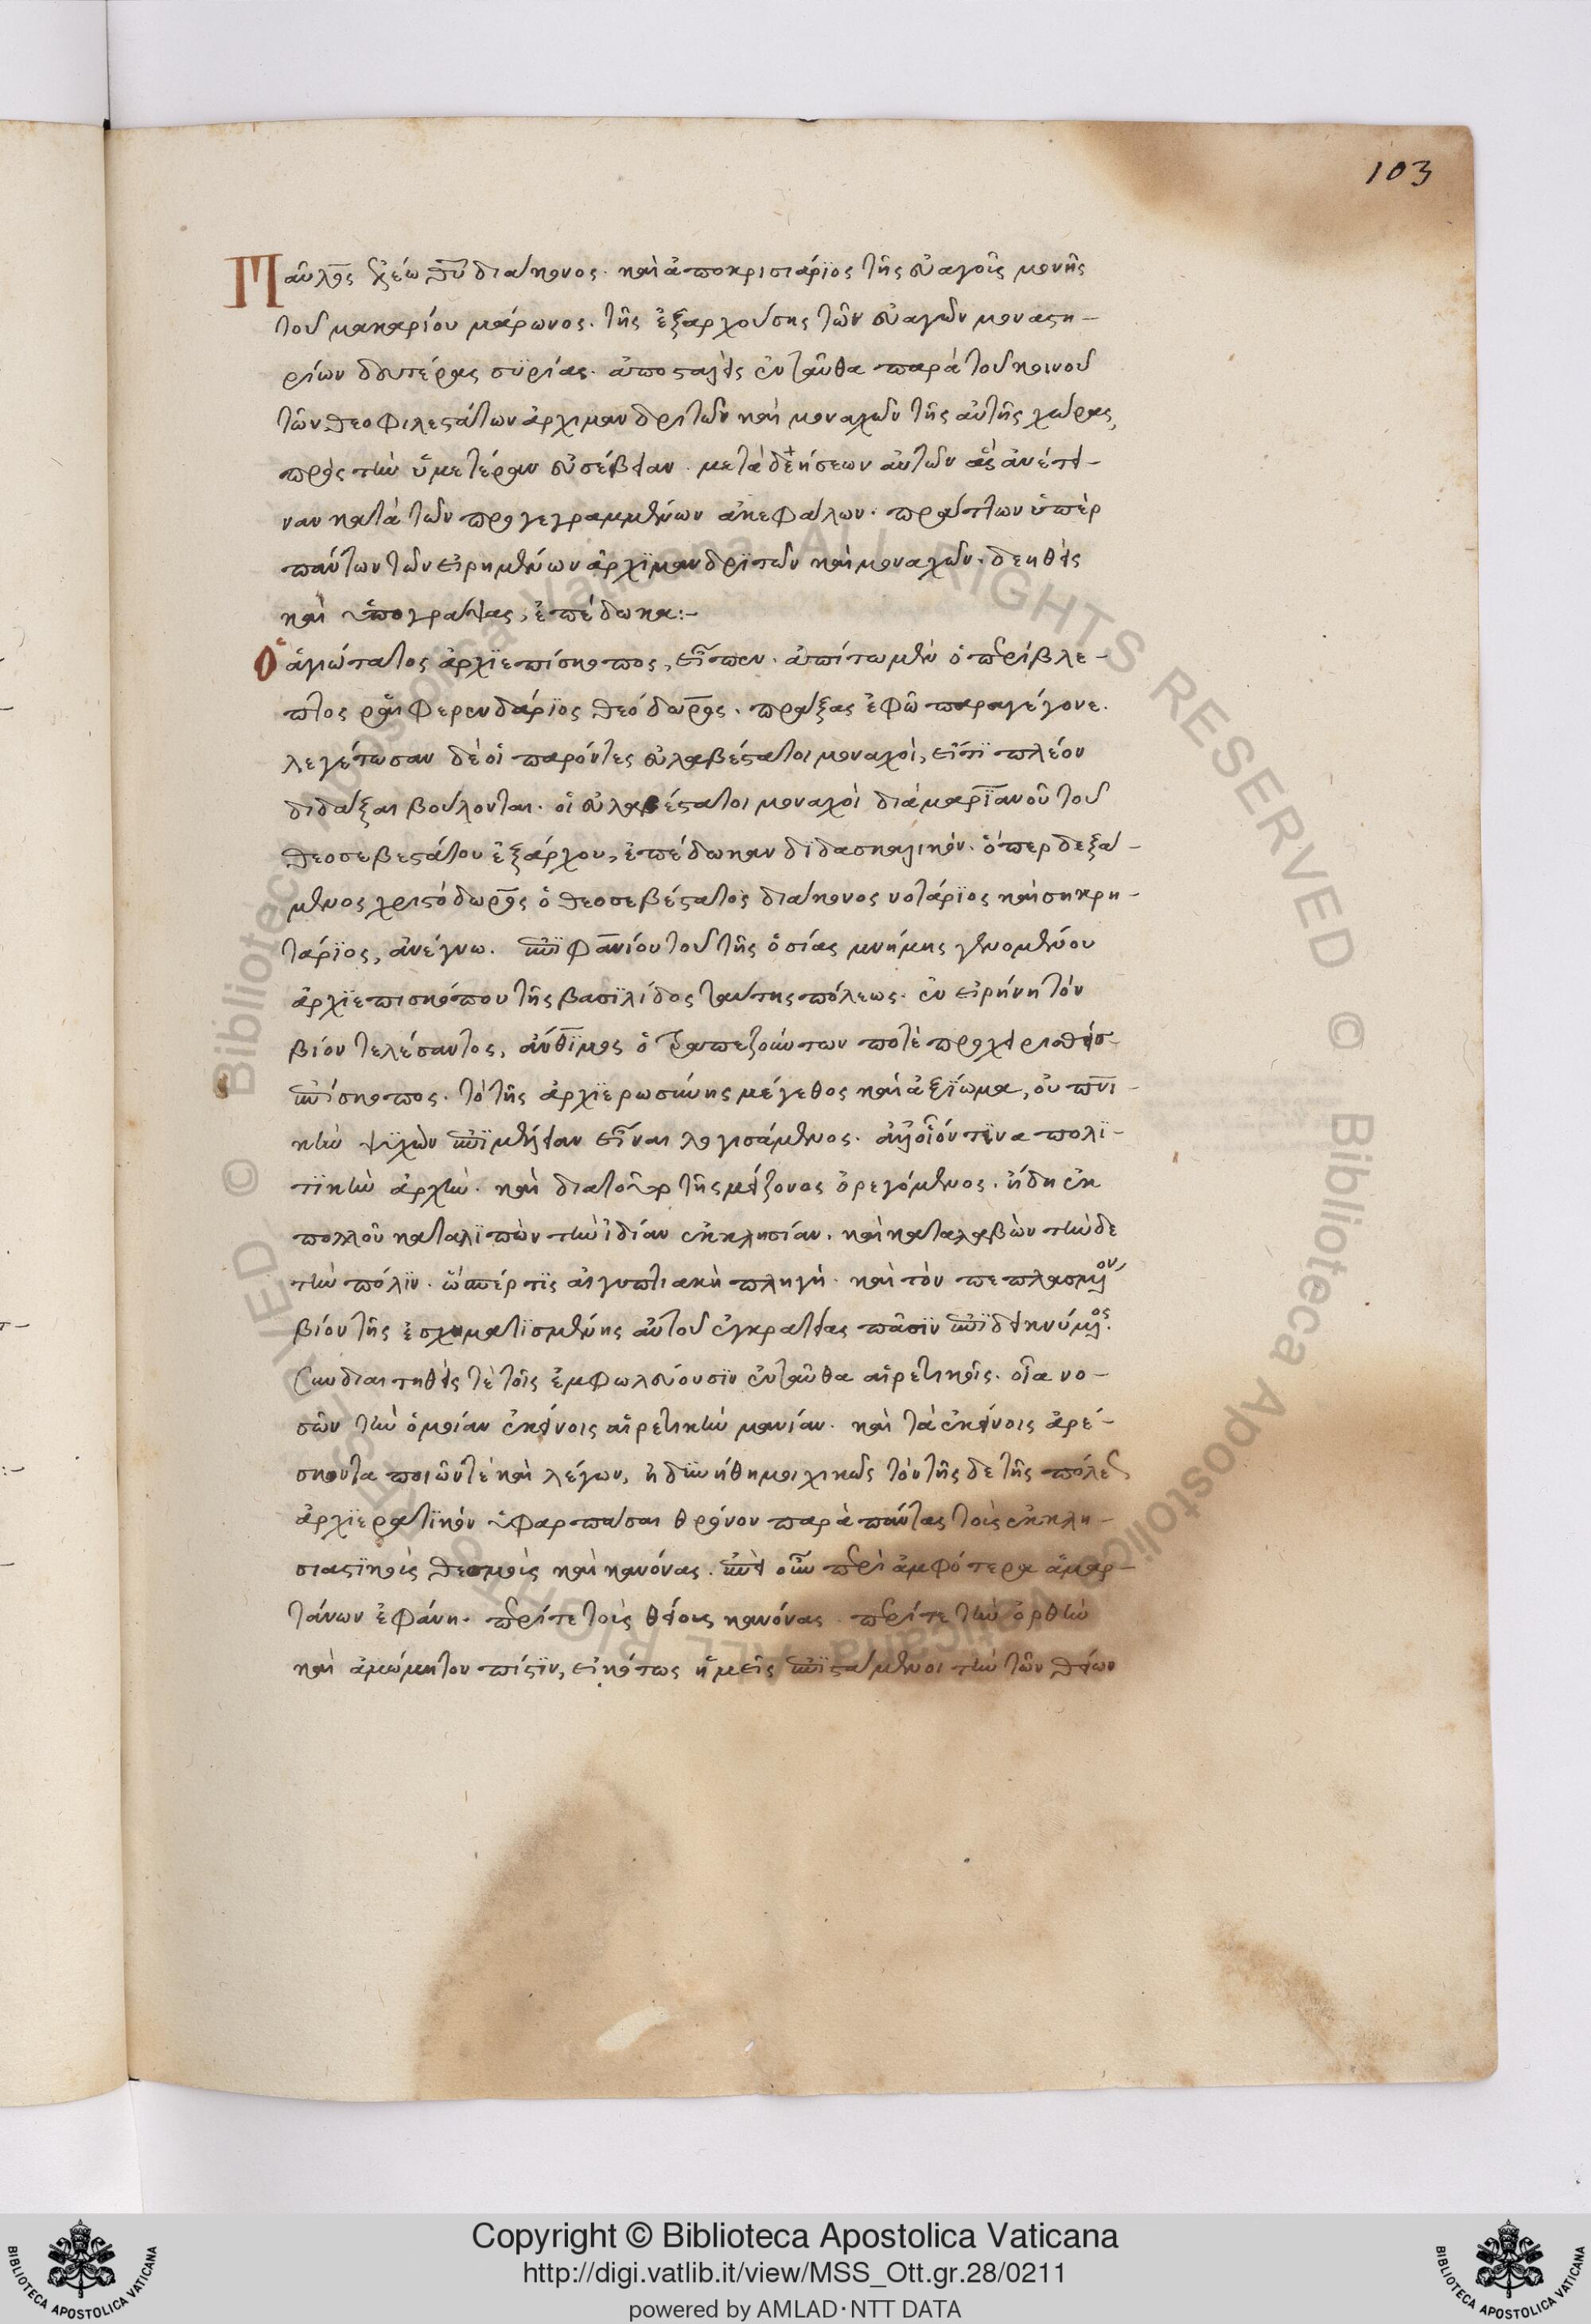 103
Παῦλος ἐλέω θυ διάκονος. καὶ ἀποκρισιάριος τῆς εὐαγοῦς μονῆς
τοῦ μακαρίου μάρωνος. τῆς ἐξαρχούσης τῶν εὐαγῶν μοναστη-
ρίων δευτέρας συρίας. ἀποσταλεὶς ἐνταῦθα παρὰ τοῦ κοινοῦ
τῶν θεοφιλεστάτων ἀρχιμανδριτῶν καὶ μοναχῶν τῆς αὐτῆς χώρας,
πρὸς τὴν ὑμετέραν εὐσέβειαν. μετὰ δεήσεων αὐτῶν ἃς ἀνέτει-
ναν κατὰ τῶν προγεγραμμένων ἀκεφάλων. πράττων ὑπὲρ
πάντων τῶν εἰρημένων ἀρχϊμανδρϊτῶν καὶ μοναχῶν. δεηθεὶς
καὶ ὑπογράψας, ἐπέδωκα:-
Ὁ ἁγιώτατος ἀρχϊεπίσκοπος, εἶπεν. ἀπίτω μὲν ὁ περίβλε-
πτος ραιφερενδάρϊος θεόδωρος. πράξας ἐφῶ παραγέγονε.
λεγέτωσαν δὲ οἱ παρόντες εὐλαβέστατοι μοναχοὶ, εἴτϊ πλέον
διδάξαι βούλονται. οἱ εὐλαβέστατοι μοναχοὶ διὰ μαρϊανοῦ τοῦ
θεοσεβεστάτου ἐξάρχου, ἐπέδωκαν διδασκαλικόν. ὅπερ δεξά-
μενος χριστόδωρος ὁ θεοσεβέστατος διάκονος νοτάρϊος καὶ σηκρη-
τάρϊος, ἀνέγνω. ἐπϊφανίου τοῦ τῆς ὁσίας μνήμης γενομένου
ἀρχϊεπισκόπου τῆς βασϊλίδος ταύτης πόλεως. ἐν εἰρήνη τὸν
βίον τελέσαντος, ἄνθϊμος ὁ τραπεζουντων ποτὲ προχειρισθεὶς
ἐπίσκοπος. τὸ τῆς ἀρχϊερωσύνης μέγεθος καὶ ἀξϊωμα, οὐ πνι-
κὴν ψϊχῶν ἐπϊμέλειαν εἶναι λογισάμενος. ἀλλ οἷόν τϊνα πολϊ-
τϊκὴν ἀρχὴν. καὶ διατοῦτο τῆς μείζονος ὀρεγόμενος. ἤδη ἐκ
πολλοῦ καταλϊπὼν τὴν ἰδίαν ἐκκλησίαν. καὶ καταλαβὼν τήνδε
τὴν πόλϊν. ὥσπέρ τϊς αἰγυπτιακὴ πληγή. καὶ τὸν πεπλασμένον
βίον τῆς ἐσχηματϊσμένης αὐτοῦ ἐγκρατείας πᾶσϊν ἐπϊδεικνύμενος.
συνδιαιτηθείς τὲ τοῖς ἐμφωλεύουσϊν ἐνταῦθα αἱρετικοῖς. οἷα νο-
σῶν τὴν ὁμοίαν ἐκείνοις αἱρετικὴν μανίαν. καὶ τὰ ἐκείνοις ἀρέ-
σκοντα ποιῶν τὲ καὶ λέγων, ἠδυνήθη μοιχικῶς τὸν τῆς δε τῆς πόλεως
ἀρχϊερατϊκὸν ὑφαρπάσαι θρόνον παρὰ πάντας τοὺς ἐκκλη-
σιαστϊκοὺς θεσμοὺς καὶ κανόνας. ἐπεὶ οὖν περὶ ἀμφότερα ἁμαρ-
τάνων ἐφάνη. περίτε τοὺς θείους κανόνας. περίτε τὴν ὀρθὴν
καὶ ἀμώμητον πίστϊν, εἰκότως ἡμεῖς ἐπϊστάμενοι τὴν τῶν θείων
Copyright © Biblioteca Apostolica Vaticana
http://digi.vatlib.it/view/MSS_Ott.gr.28/0211
powered by AMLAD·NTT DATA